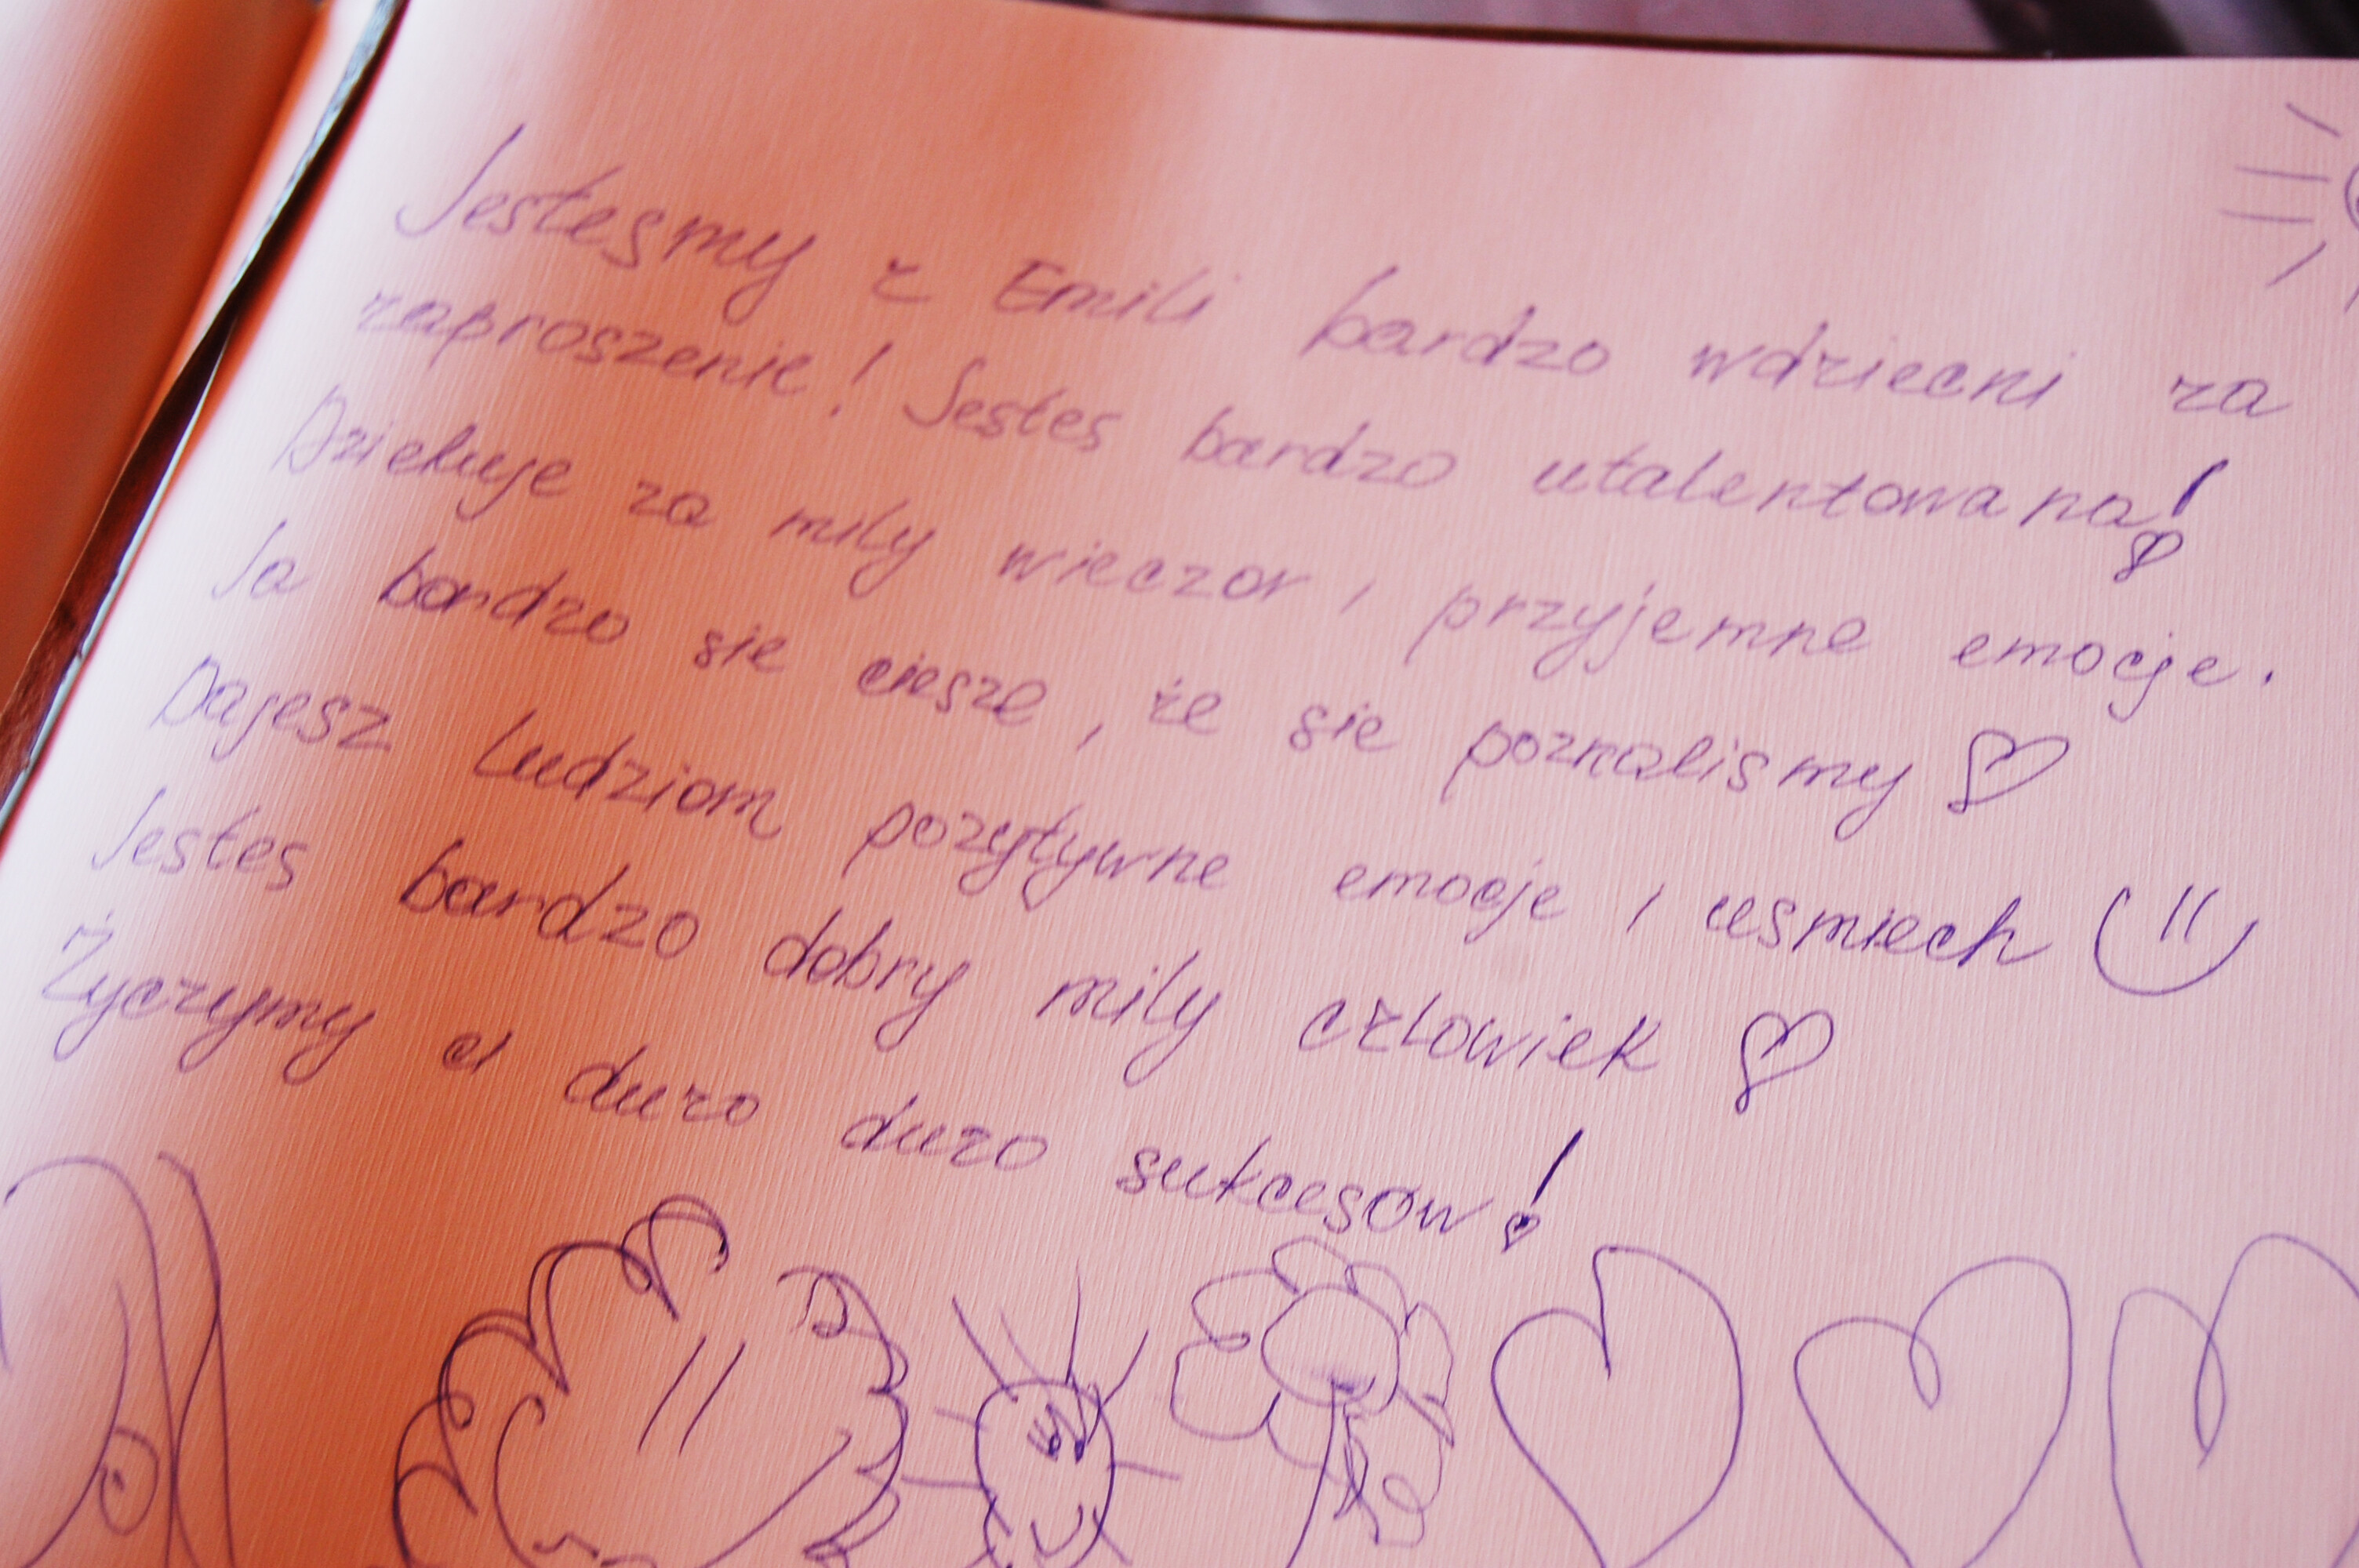 Jestesmy z Emili bardzo wdziecni za
zaproszenie! Jestes bardzo utalentowana!
Dziekuje za mily wieczor i przyjemne emocje.
Ja bardzo sie ciesze, że sie poznalismy ♡
Dajesz ludziom pozytywne emocje i usmiech
Jestes bardzo dobry mily człowiek ♡
Życzymy ci duzo duzo sukcesow!